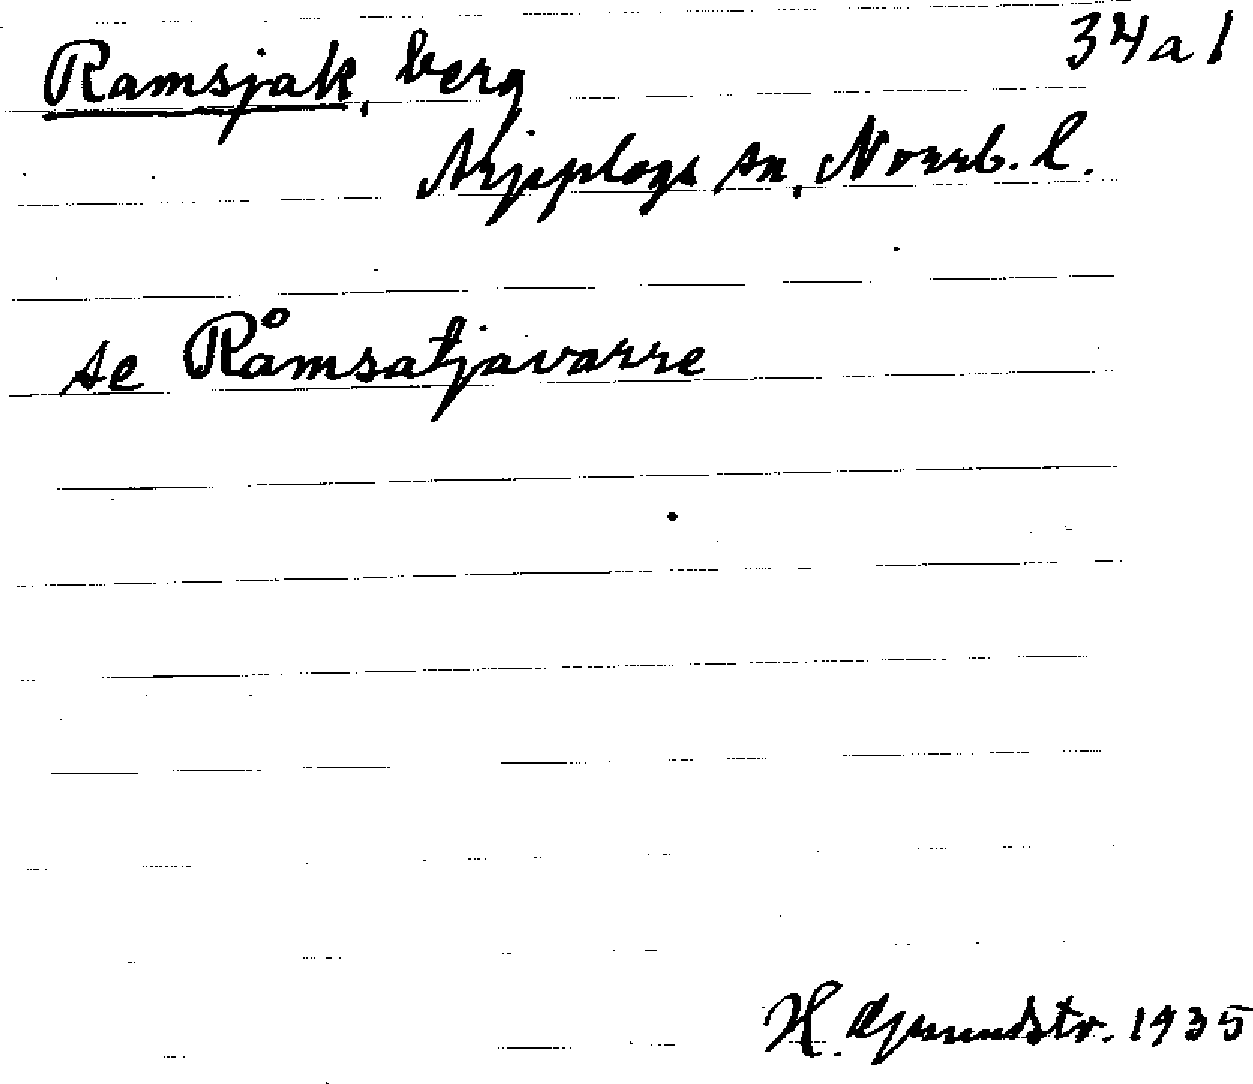 34a1
Ramsjak, berg
Arjeplogs sn, Norrb. l.
se Råmsatjåvarre
H. Grundstr. 1935